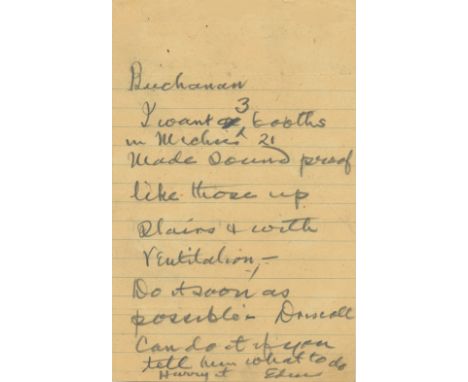 Buchanan
I want 3 booths
in 21
Made Sound proof
like those up
stairs & with
Ventilation,—
Do it soon as
possible - Driscoll
Can do it if you
tell him what to do
Hurry it